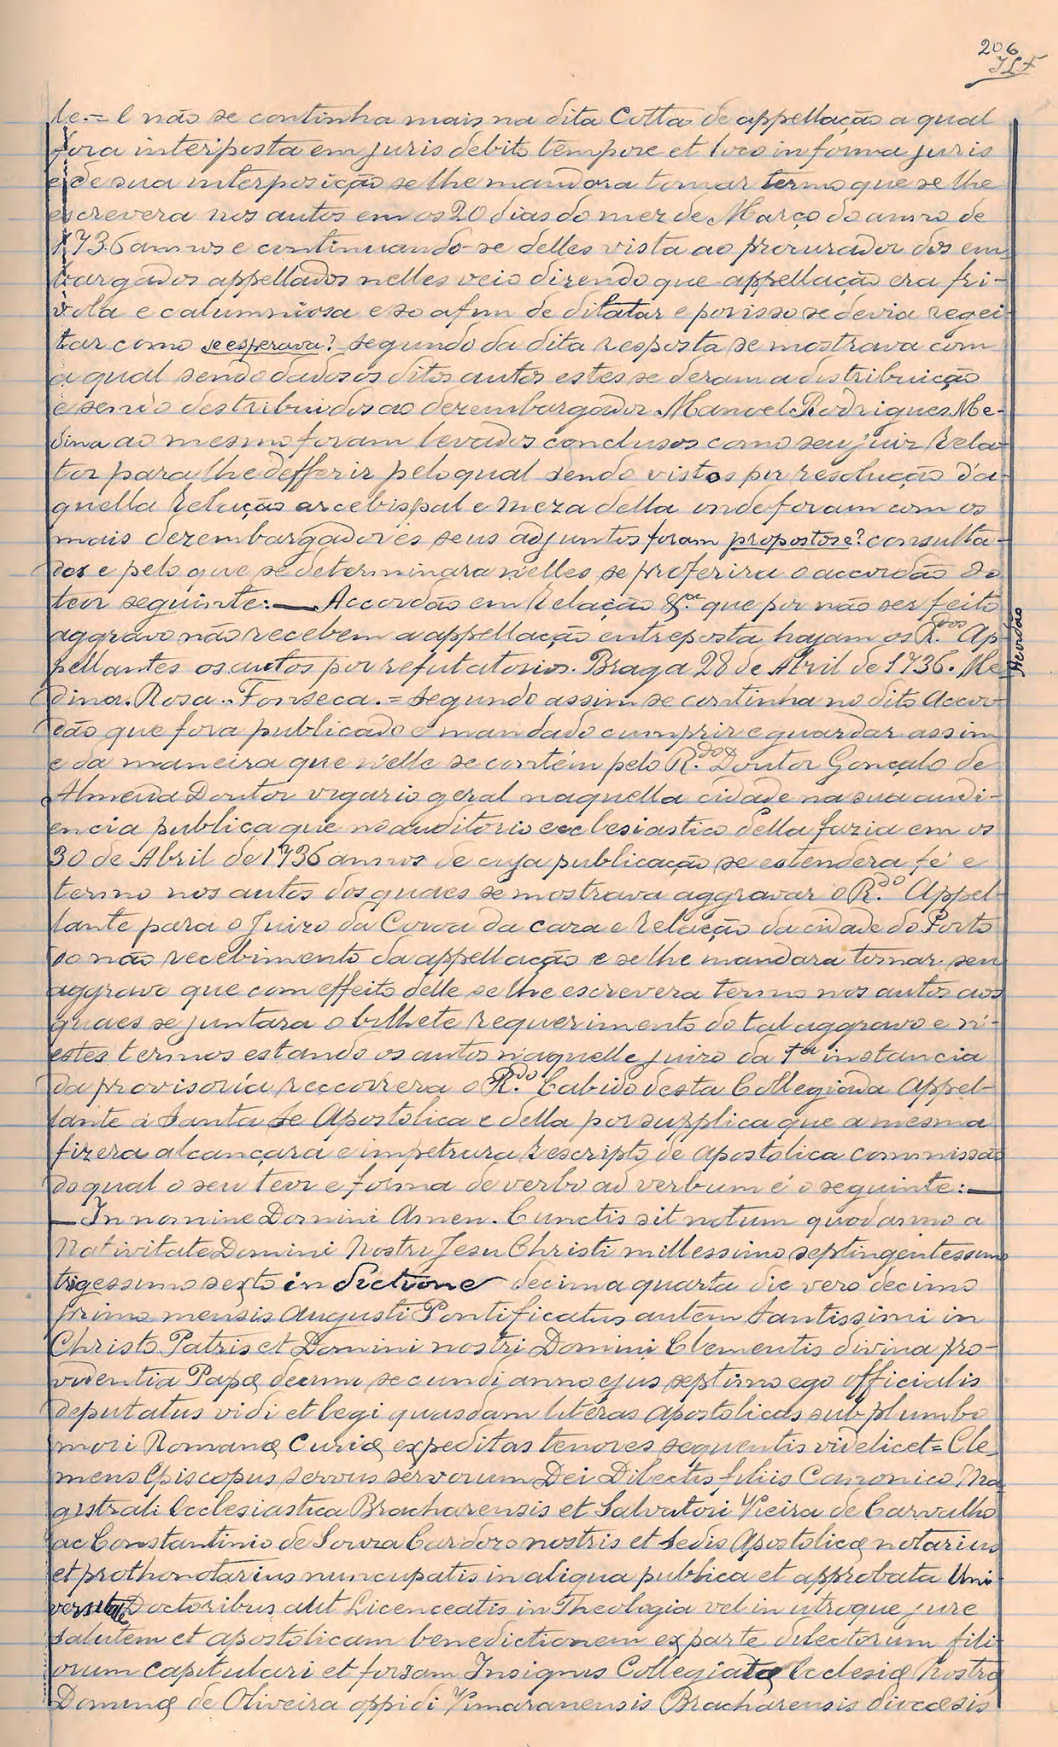 206
JLF
le.= E não se continha mais na dita Cotta de appellação a qual
fora interposta em juris debito tempore et loco in forma juris
e de sua interposição se lhe mandora tomar termo que se lhe
escrevera nos autos em os 20 dias do mez de Março do anno de
1736 annos e continuando-se delles vista ao procurador dos em
bargados appellados nelles veio dizendo que appellação era fri-
vola e calumniosa e so afim de dilatar e por isso se devia regei
tar como se esperava? segundo da dita resposta se mostrava com
a qual sendo dados os ditos autos estes se deram a destribuição
e sendo destribuidos ao dezembargador Manoel Rodrigues Me-
dina ao mesmo foram levados conclusos como seu juiz Rela-
tor para lhe defferir pelo qual sendo vistos por resolução d'a-
quella Relação arcebispal e meza della onde foram com os
mais dezembargadores seus adjuntos foram propostos e? consulta-
dos e pelo que se determinara n'elles se proferira o accordão do
teor seguinte:— Accordão em Relação &.ª que por não ser feito
aggravo não recebem a appellação entreposta, hajam os R.dos Ap-
Acordão
pellantes os autos por refutatorios. Braga 28 de Abril de 1736. Me-
dina. Rosa.. Fonseca.= segundo assim se continha no dito Accor-
dão que fora publicado e mandado cumprir e guardar assim
e da maneira que n'elle se contém pelo R.do Doutor Gonçalo de
Almeida Doutor vigario geral naquella cidade na sua audi-
encia publica que no auditorio ecclesiastico della fazia em os
30 de Abril de 1736 annos de cuja publicação se estendera fé e
termo nos autos dos quaes se mostrava aggravar o R.do Appel-
lante para o Juizo da Coroa da caza e Relação da cidade do Porto
do não recebimento da appellação e se lhe mandara tomar seu
aggravo que com effeito delle se lhe escrevera termo nos autos aos
quaes se juntara o bilhete requerimento do tal aggravo e n'-
estes termos estando os autos n'aquelle juizo da 1.ª instancia
da provisoria reccorrera o R.do Cabido desta Collegiada Appel-
lante á Santa Se Apostolica e della por supplica que a mesma
fizera alcançara e impetrara Rescripto de apostolica commissão
do qual o seu teor e forma de verbo ad verbum é o seguinte:—
— In nomine Domini Amen. Cunctis sit notum quod anno a
Nativitate Domini Nostri Jesu Christi millessimo septingentessimo
trigessimo sexto indictione decima quarta die vero decimo
primo mensis Augusti Pontificatus autem Santissimi in
Christo Patris et Domini nostri Domini Clementis divina pro-
videntia Papæ decimi secundi anno ejus septimo ego officialis
deputatus vidi et legi quasdam literas Apostolicas sub plumbo
mori Romanæ Curiæ expeditas tenores sequentis videlicet= Cle
mens Episcopus servus servorum Dei Dilectis filiis Canonico Ma
gistrali Ecclesiastica Bracharensis et Salvatori Vieira de Carvalho
ac Constantinio de Souza Cardozo nostris et Sedis Apostolicæ notarius
et prothonotarius nuncupatis in aliqua publica et approbata Uni
versitate Doctoribus aut Licenceatis in Theologia vel in utroque jure
salutem et apostolicam benedictionem ex parte dilectorum fili
orum capitulari et forsam Insignis Collegiatæ Ecclesiæ Nostræ
Dominæ de Oliveira oppidi Vimaranensis Bracharensis diœcesis